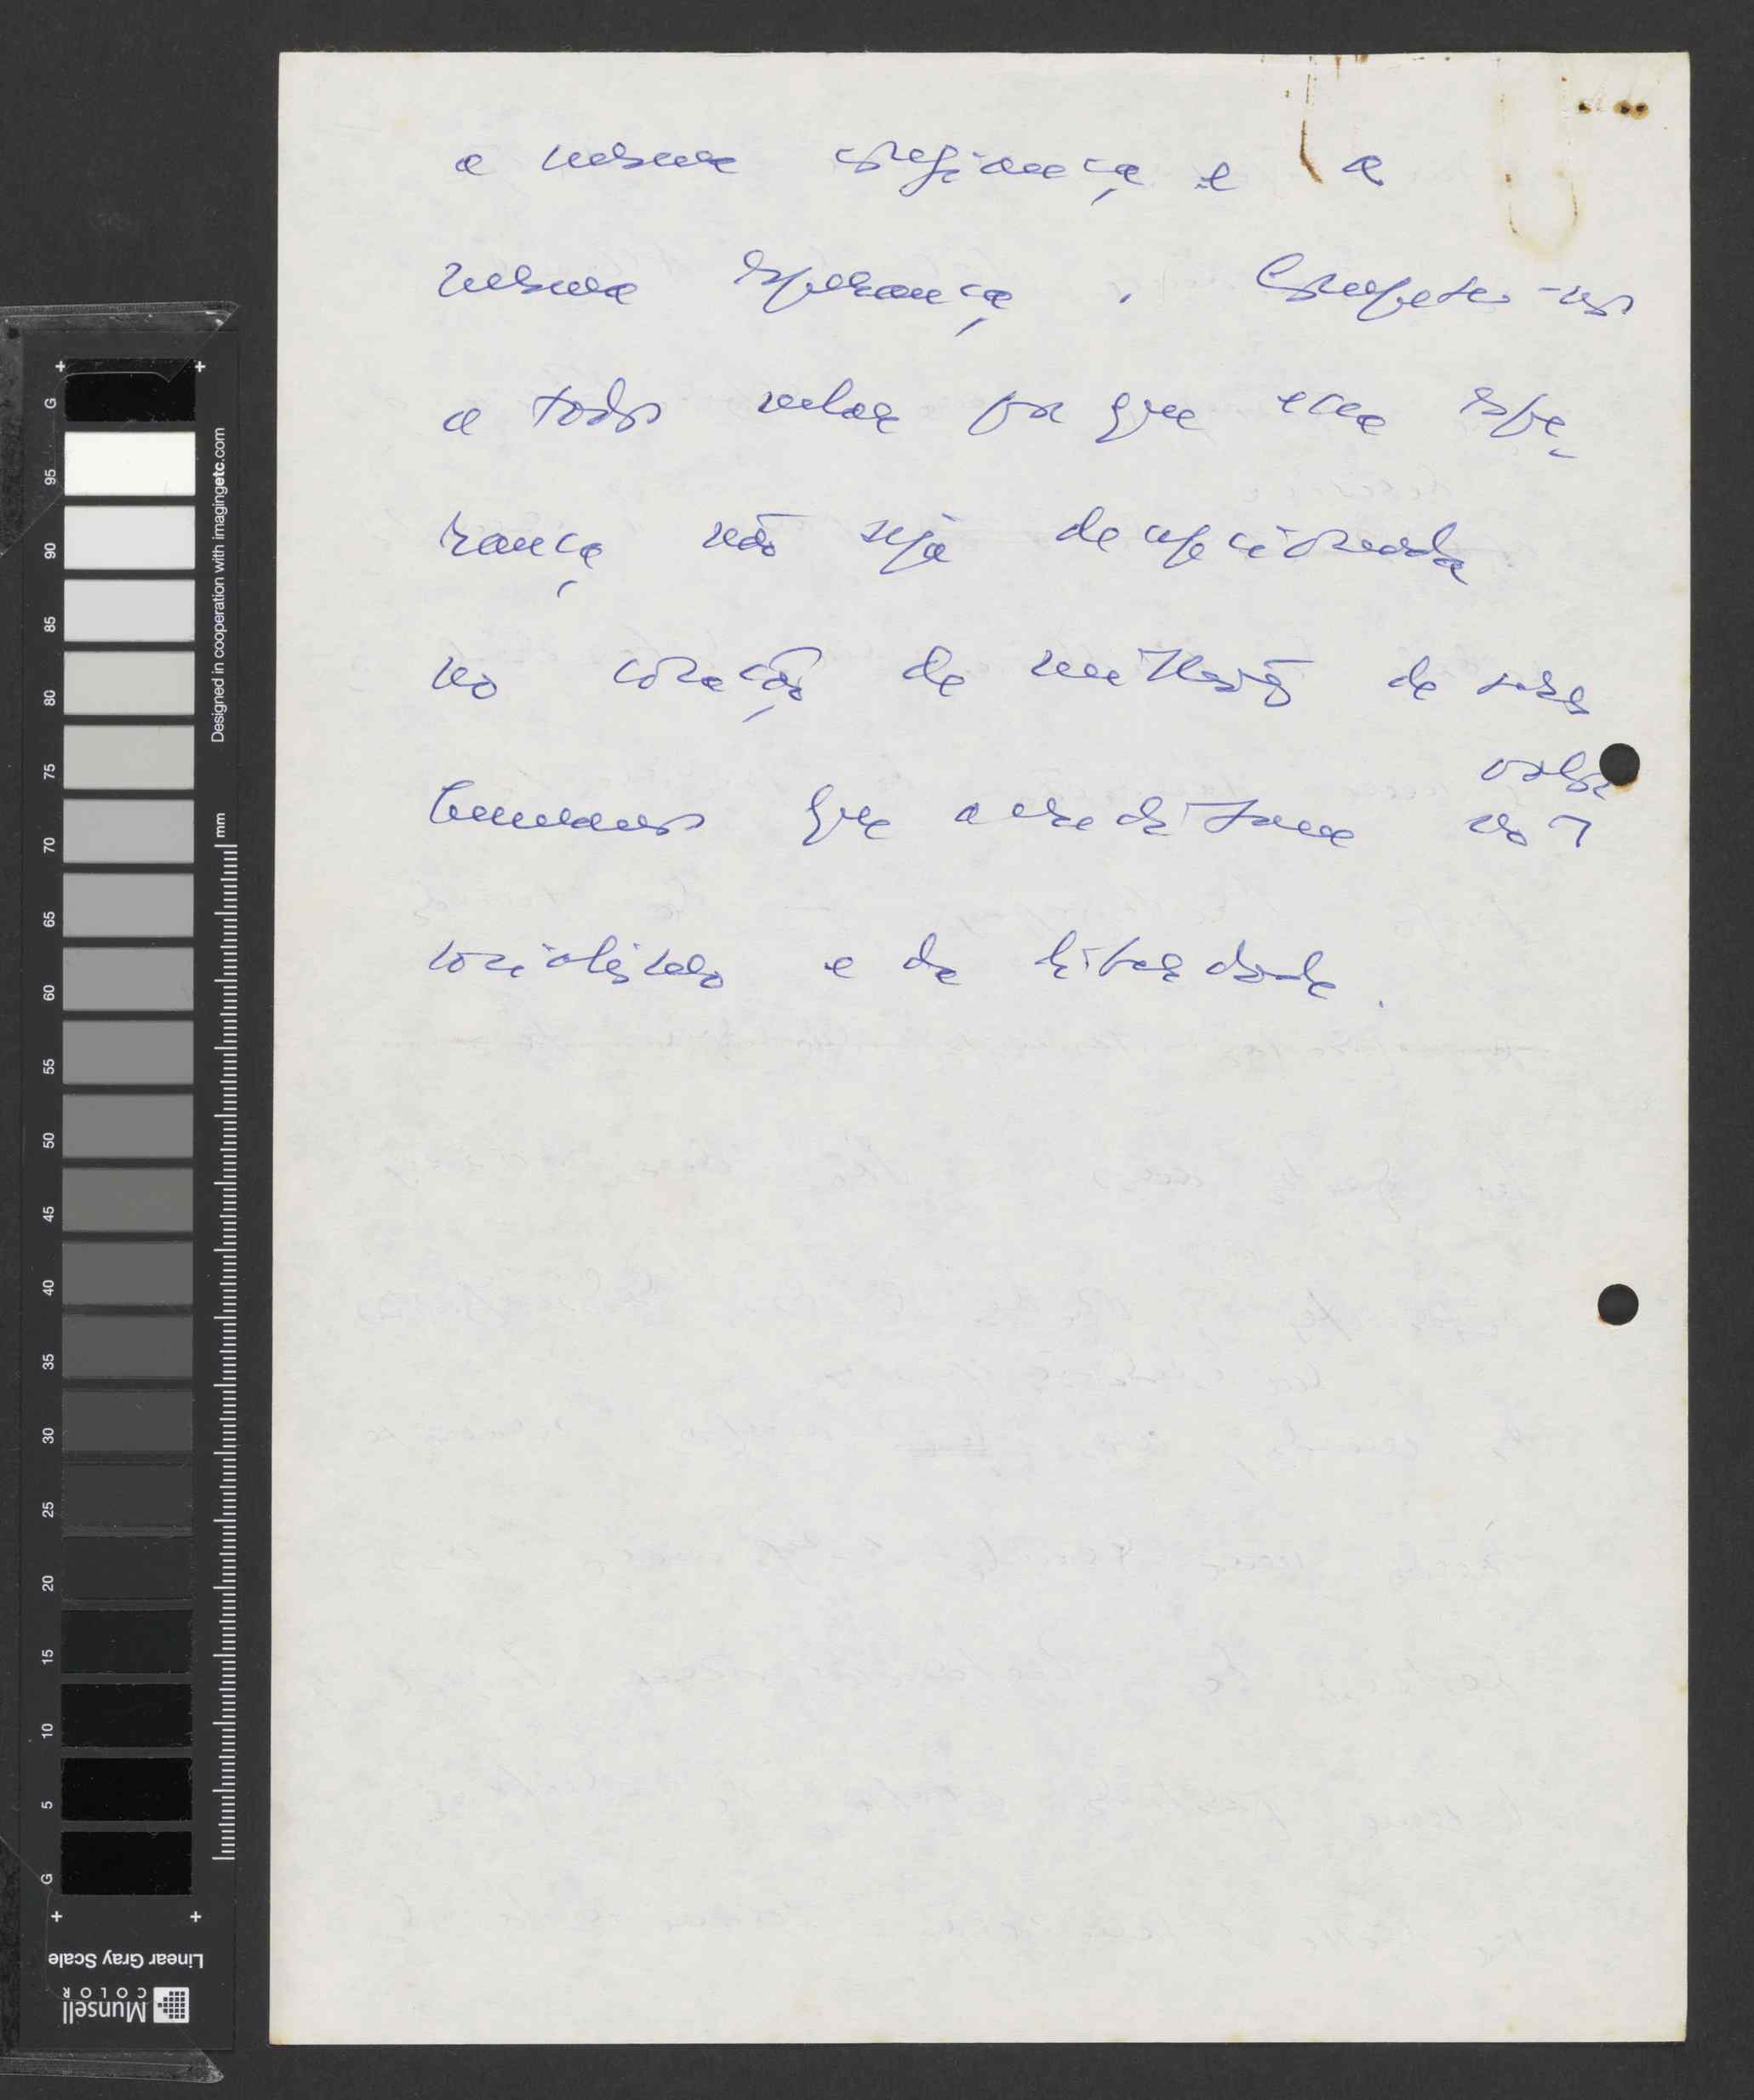 a mesma confiança e a
mesma esperança. Compete-nos
a todos velar por que essa espe-
rança não seja decepcionada
no coração de milhões de seres
humanos que acreditam no valor
socialismo e da liberdade.
G
95
90
85
80
75
70
65
60
55
50
45
40
35
30
25
20
15
10
5
G
Designed in cooperation with imagingetc.com
mm
Linear Gray Scale
Munsell
COLOR